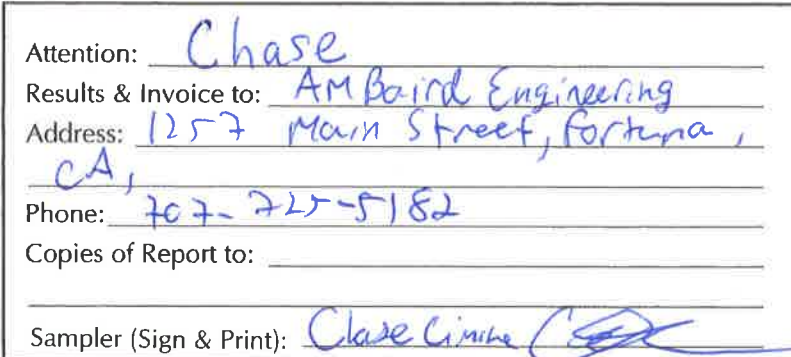 Attention: Chase
Results & Invoice to: AM Baird Engineering
Address: 1257 Main Street, Fortuna,
CA,
Phone: 707-725-5182
Copies of Report to:
Sampler (Sign & Print): Chase